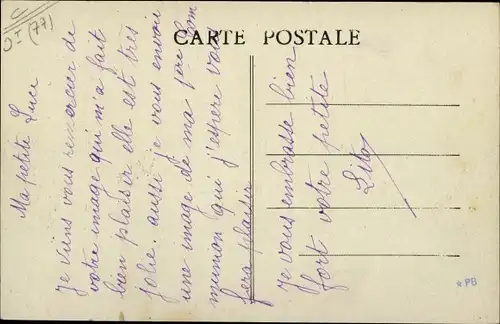 C
OT (77)
CARTE POSTALE
Ma petite Luce
Je viens vous remercier de
votre image qui m'a fait
bien plaisir elle est très
jolie. aussi je vous envoie
une image de ma 1ère Com
munion qui j'espère vous
fera plaisir
Je vous embrasse bien
fort votre petite
*PB